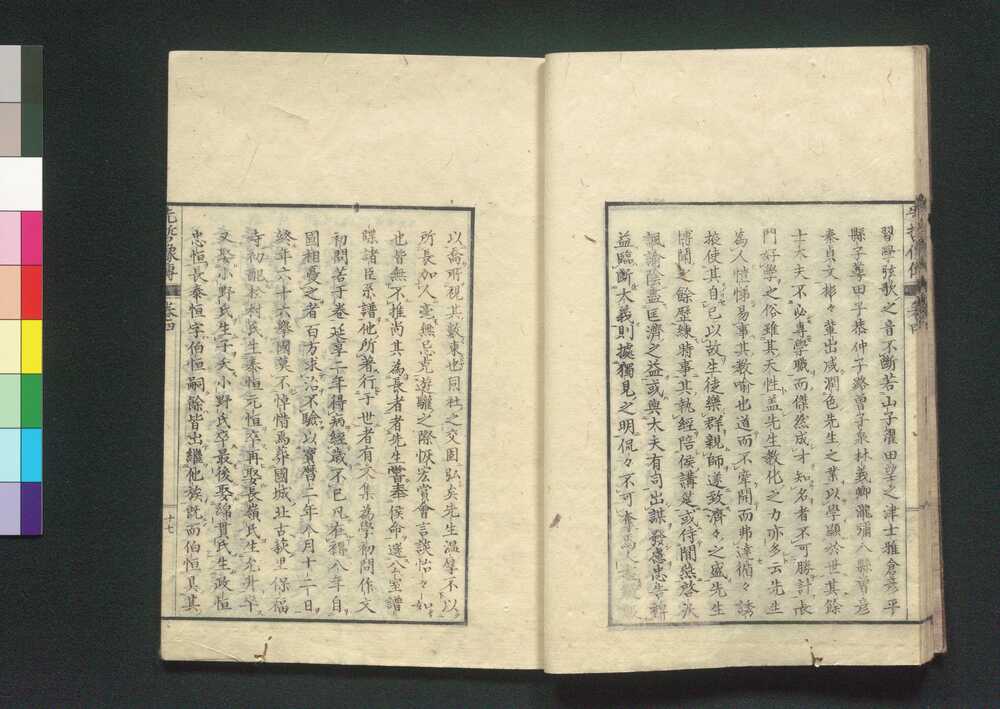 習學弦歌之音不斷若山子濯田望之津士雅倉彥平
縣子尊田子恭仲子路曾子泉林義卿瀧彌八縣魯彥
秦貞文彬々輩出咸潤色先生之業以學顯於世其餘
士大夫不必專學職而傑然成才知名者不可勝計長
門好學之俗雖其天性蓋先生教化之力亦多云先生
為人愷悌易事其教喻也道而不牽開而弗達循々誘
掖使其自已以故生徒樂群親師遂致濟々之盛先生
博聞之餘歷練時事其執經陪侯講筵或侍間燕啓沃
諷諭陰盡匡濟之益或與大夫有司出謀發慮忠告裨
益臨斷大義則據獨見之明侃々不可奪焉
以侖所視其數東也同社之交固弘矣先生溫厚不以
所長加人毫無忌克遊驩之際恢宏賞會言談怡々如
也皆無不推尚其為長者者先生嘗奉侯命選公室譜
牒諸臣系譜他所著行于世者有文集為學初問作文
初問若干卷延享二年得病經歲不已凡有稱八年自
國相憂之者百方求治不驗以寶曆二年八月十二日
終年六十六舉國莫不悼惜焉葬國城北古萩里保福
寺初配村氏生泰恒元恒卒再娶長嶺氏生允升卒
又娶小野氏生子夭小野氏卒最後娶綿貫氏生政恒
忠恒長泰恒字伯恒嗣餘皆出繼他族既而伯恒具其
先哲像傳 卷四
十七